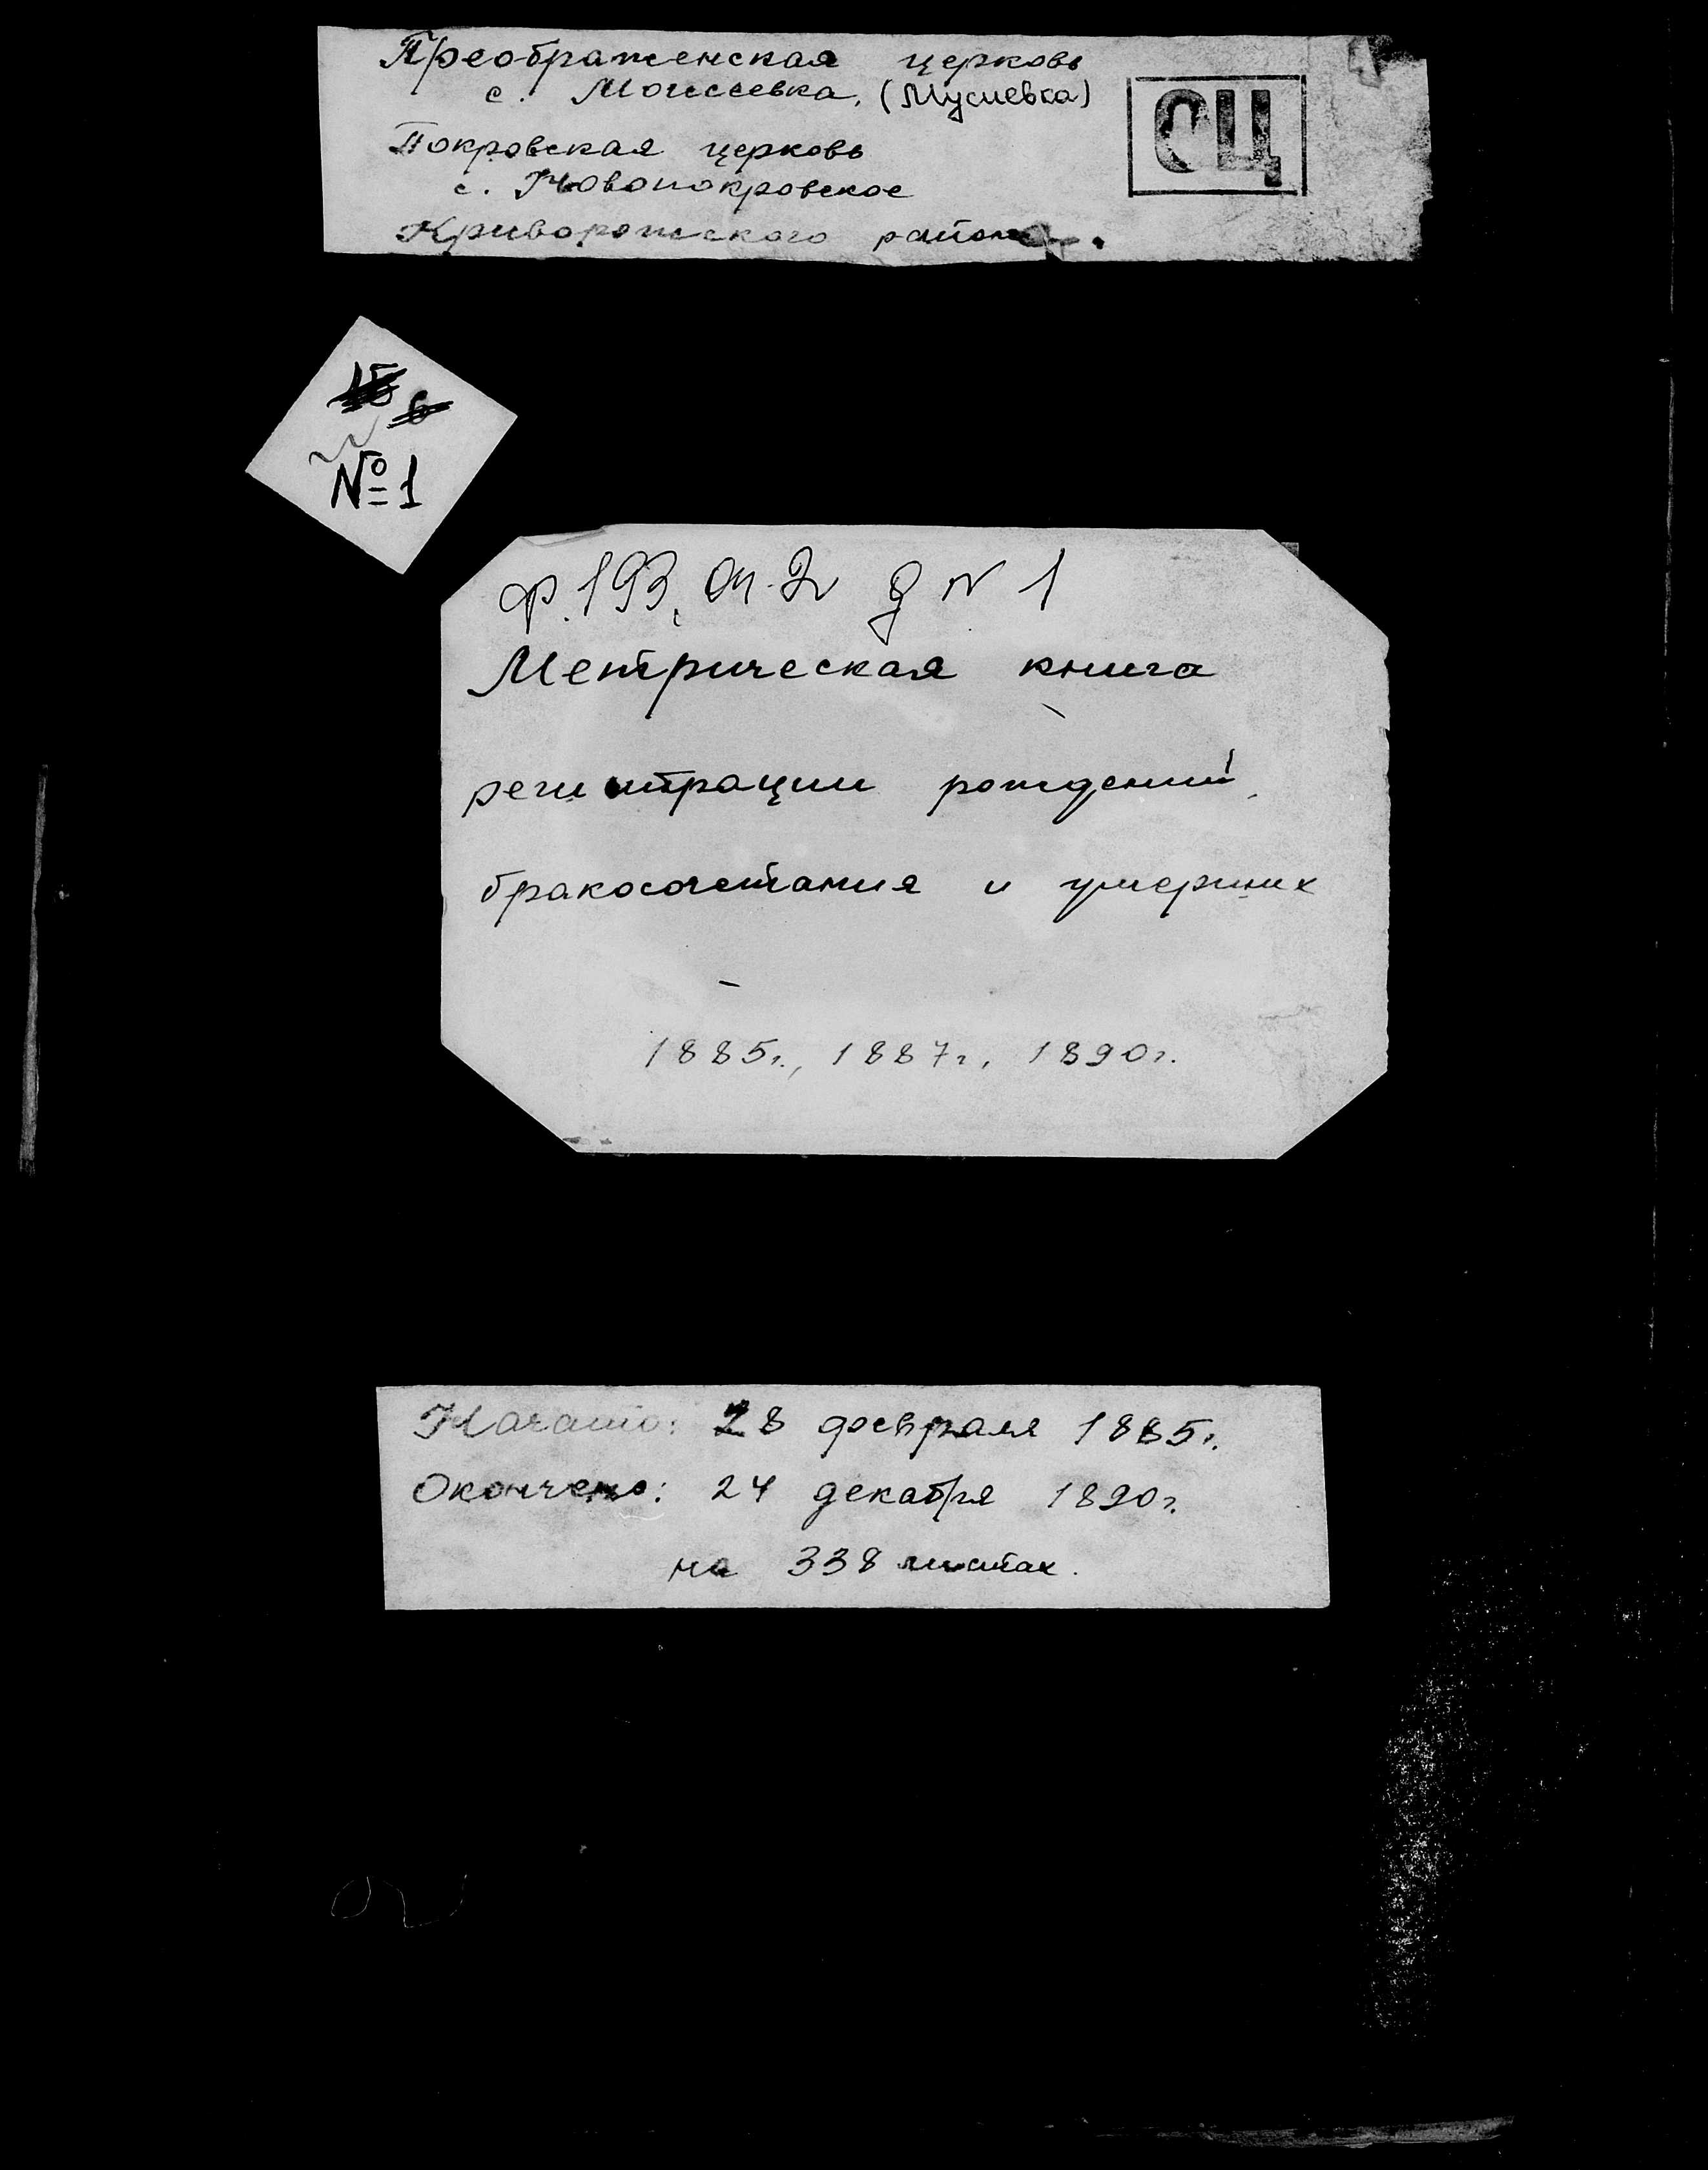 Преображенская церковь
с. Моисеевка, (Мусиевка)
ОЦ
Покровская церковь
с. Новопокровское
Криворожского района.
15 6
№1
ф. 193, оп. 2 д N 1
Метрическая книга
регистрации рождений,
бракосочетания и умерших
1885г., 1887г., 1890г.
Начато: 28 февраля 1885г.
Окончено: 24 декабря 1890г.
на 338 листах.